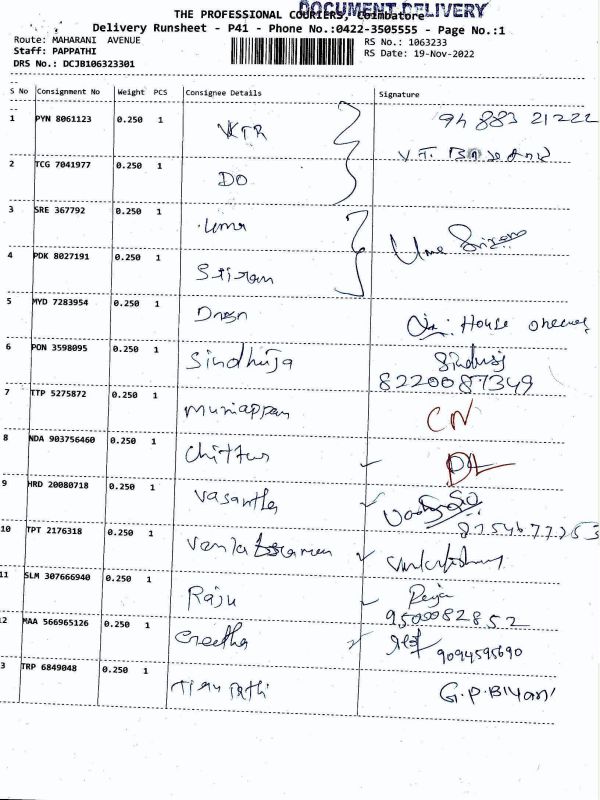 DOCUMENT DELIVERY
THE PROFESSIONAL COURIERS, Coimbatore
Delivery Runsheet - P41 - Phone No.:0422-3505555 - Page No.:1
Route: MAHARANI AVENUE
Staff: PAPPATHI
DRS No.: DCJB106323301
RS No.: 1063233
RS Date: 19-Nov-2022
S No Consignment No Weight PCS Consignee Details Signature
1 PYN 8061123 0.250 1 VKTR 94 883 21222
2 TCG 7041977 0.250 1 DO
3 SRE 367792 0.250 1 Uma
4 PDK 8027191 0.250 1 Sriram
5 MYD 7283954 0.250 1 House
6 PON 3598095 0.250 1 Sindhuja
8220087349
7 TTP 5275872 0.250 1 Muniappan CN
8 NDA 903756460 0.250 1 DL
9 HRD 20080718 0.250 1 Vasantha
10 TPT 2176318 0.250 1
11 SLM 307666940 0.250 1 Raju Raja
9500082852
2 MAA 566965126 0.250 1 Geetha 9094595690
3 TRP 6849048 0.250 1 Tirupathi G.P.Biyani